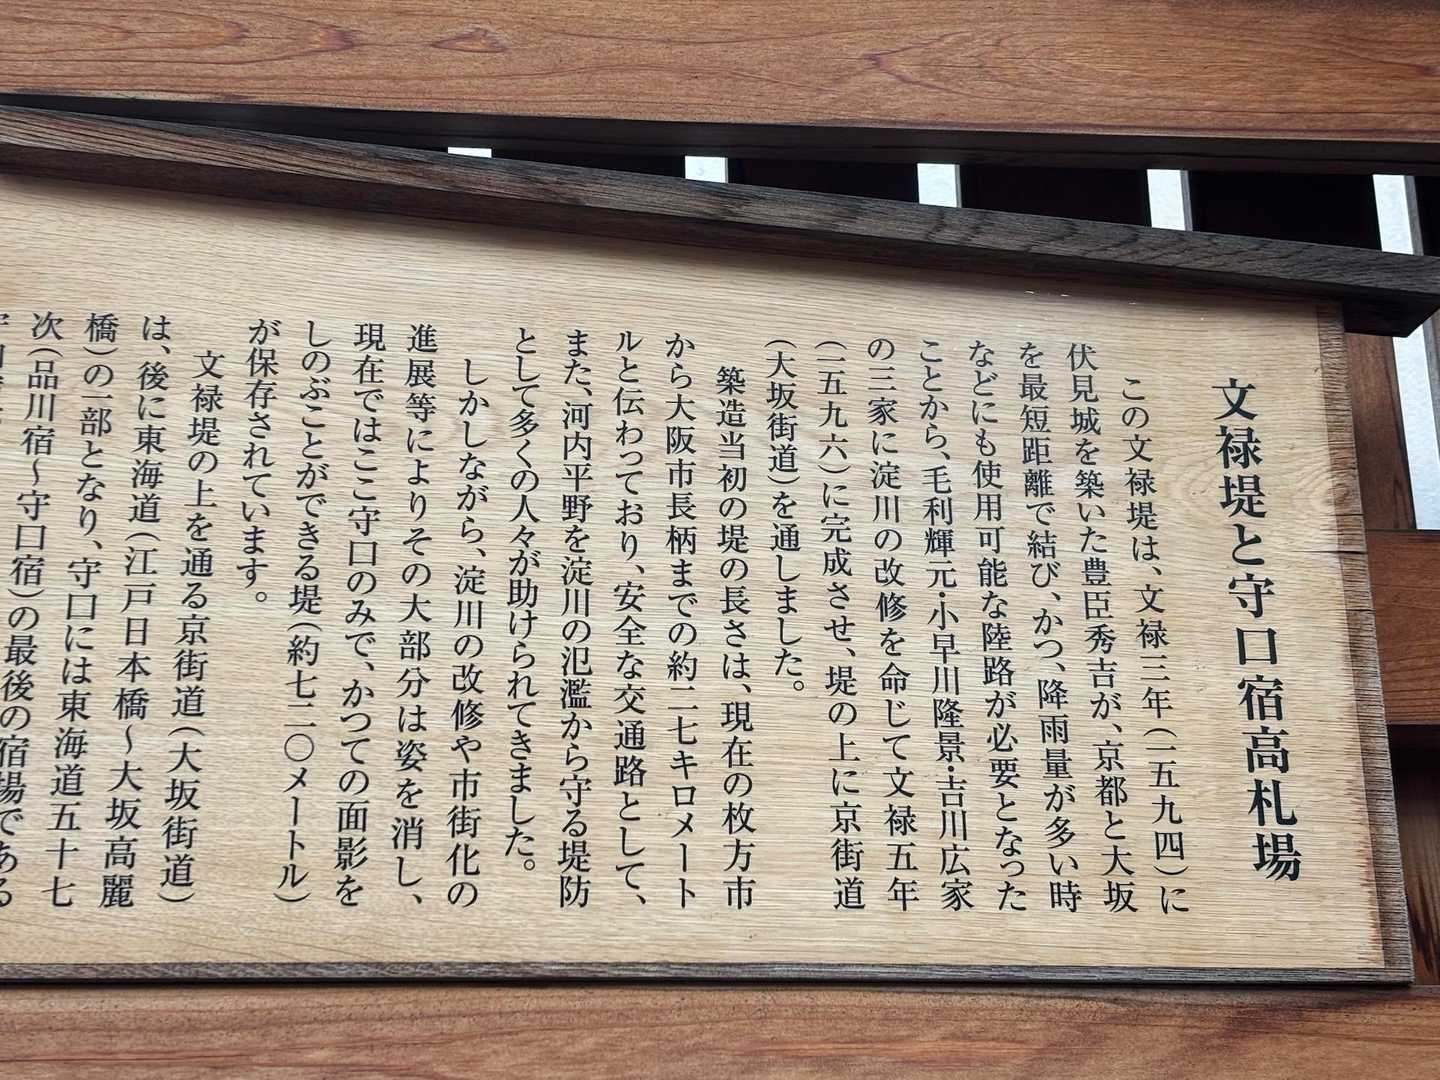 文禄堤と守口宿高札場
この文禄堤は、文禄三年(一五九四)に
伏見城を築いた豊臣秀吉が、京都と大坂
を最短距離で結び、かつ、降雨量が多い時
などにも使用可能な陸路が必要となった
ことから、毛利輝元・小早川隆景・吉川広家
の三家に淀川の改修を命じて文禄五年
(一五九六)に完成させ、堤の上に京街道
(大坂街道)を通しました。
築造当初の堤の長さは、現在の枚方市
から大阪市長柄までの約二七キロメート
ルと伝わっており、安全な交通路として、
また、河内平野を淀川の氾濫から守る堤防
として多くの人々が助けられてきました。
しかしながら、淀川の改修や市街化の
進展等によりその大部分は姿を消し、
現在ではここ守口のみで、かつての面影を
しのぶことができる堤(約七二〇メートル)
が保存されています。
文禄堤の上を通る京街道(大坂街道)
は、後に東海道(江戸日本橋〜大坂高麗
橋)の一部となり、守口には東海道五十七
次(品川宿〜守口宿)の最後の宿場である